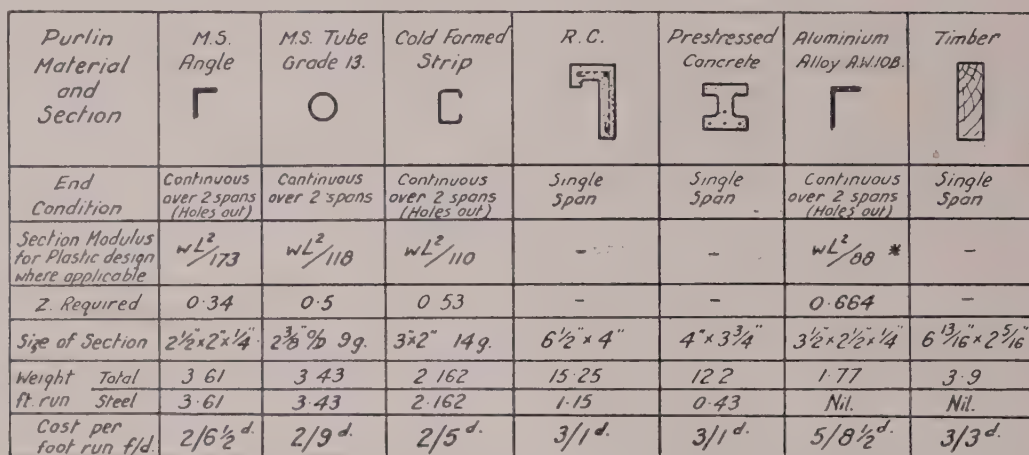 Purlin Material and Section | M.S. Angle | M.S. Tube Grade 13. | Cold Formed Strip | R.C. | Prestressed Concrete | Aluminium Alloy A.W.10B. | Timber
End Condition | Continuous over 2 spans (Holes out) | Continuous over 2 spans | Continuous over 2 spans (Holes out) | Single Span | Single Span | Continuous over 2 spans (Holes out) | Single Span
Section Modulus for Plastic design where applicable | wL²/173 | wL²/118 | wL²/110 | - | - | wL²/88 * | -
Z. Required | 0·34 | 0·5 | 0·53 | - | - | 0·664 | -
Size of Section | 2½"×2"×¼" | 2⅜" o/D 9g. | 3"×2" 14g. | 6½"×4" | 4"×3¾" | 3½"×2½"×¼" | 6 13/16"×2 5/16"
Weight ft. run Total | 3·61 | 3·43 | 2·162 | 15·25 | 12·2 | 1·77 | 3·9
Steel | 3·61 | 3·43 | 2·162 | 1·15 | 0·43 | Nil. | Nil.
Cost per foot run f/d. | 2/6½ d. | 2/9 d. | 2/5 d. | 3/1 d. | 3/1 d. | 5/8½ d. | 3/3 d.